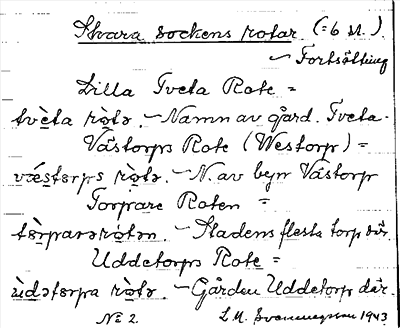 Skara sockens rotar. (=6 st.).
~ Fortsättning
Lilla Tveta Rote =
tvèta ròtə. ~ Namn av gård. Tveta.
Västorps Rote (Westorp) =
væ̀stɵrps ròtə. ~ N. av byn Västorp
Torpare Roten =
tɵ̀rparərotən. ~ Stadens flesta torp där
Uddetorps Rote =
ùdətɵrpa ròtə. ~ Gården Uddetorp där.
No 2. L. M. Svenungsson 1943